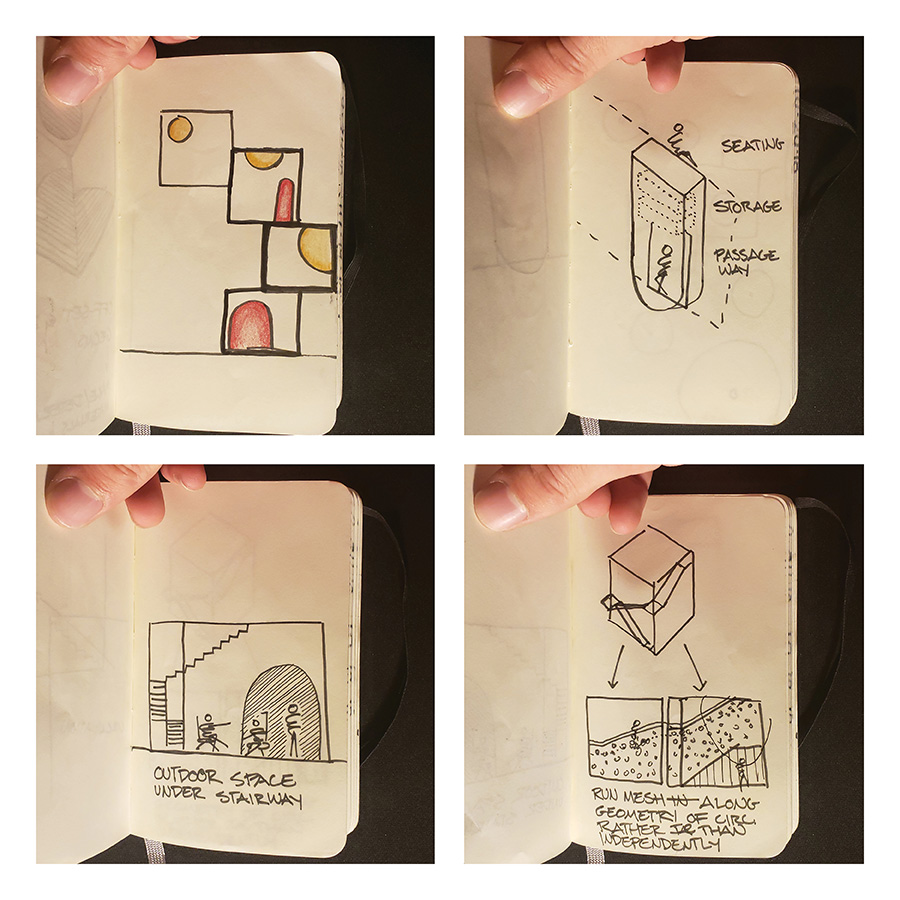 SEATING
STORAGE
PASSAGE
WAY
OUTDOOR SPACE
UNDER STAIRWAY
RUN MESH IN ALONG
GEOMETRY OF CIRC.
RATHER THAN
INDEPENDENTLY